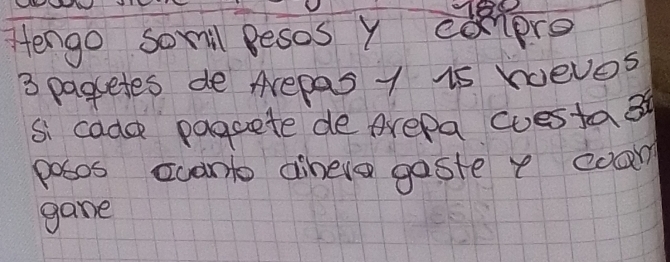 Hengo 50mil Pesos y compro
3 paquetes de Arepas y 15 huevos
si cada paquete de Arepa cuesta
posos cuanto dinero gaste y
gane